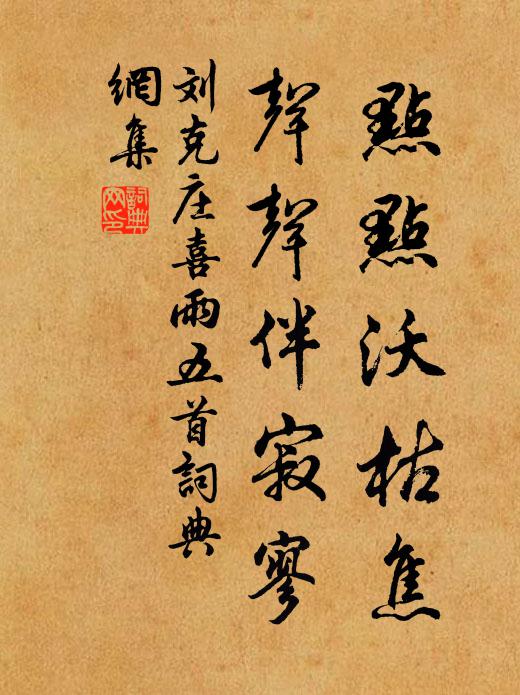 點點沃枯焦
聲聲伴寂寥
刘克庄喜雨五首詞典
網集
詞典网印